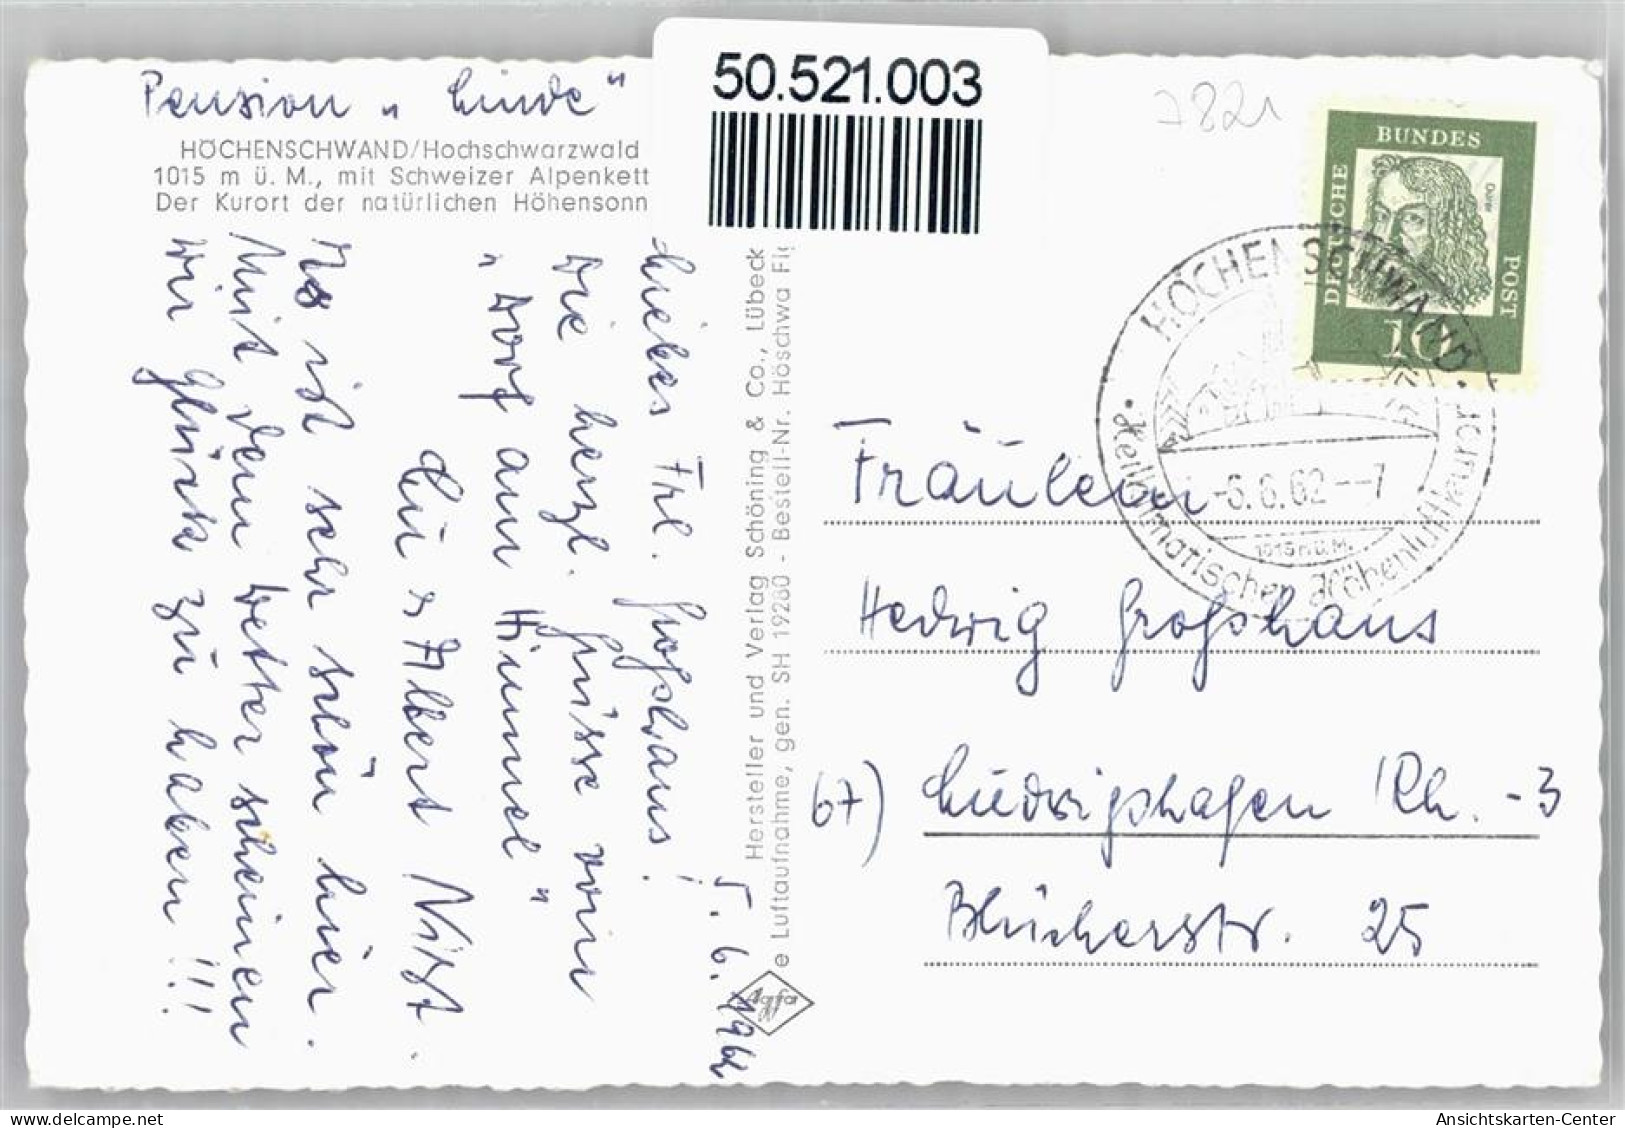 Pension „Linde"
HÖCHENSCHWAND/Hochschwarzwald
1015 m ü. M., mit Schweizer Alpenkett
Der Kurort der natürlichen Höhensonn
50.521.003
7821
DEUTSCHE BUNDES POST
Dürer
10
HÖCHENSCHWAND
-6.6.62--7
1015 m ü. M.
Heilklimatischer Höhenluftkurort
5. 6. 1962
Liebes Frl. Großhaus!
Die herzl. Grüsse vom
"Dorf am Himmel"
Lu & Albert Nist.
Es ist sehr schön hier.
Mit dem Wetter scheinen
wir Glück zu haben!!!
Hersteller und Verlag Schöning & Co., Lübeck
e Luftaufnahme, gen. SH 19280 - Bestell-Nr. Höschwa Fl
Agfa
Fräulein
Hedwig Großhaus
67) Ludwigshafen /Rh. -3
Blücherstr. 25
Ansichtskarten-Center